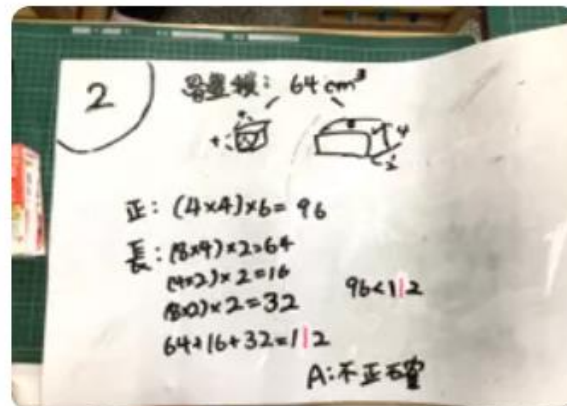 2
容量類: 64 cm³
4 2
正: (4×4)×6=96
長: (8×4)×2=64
(4×2)×2=16
(8×2)×2=32
96<112
64+16+32=112
A:不正確